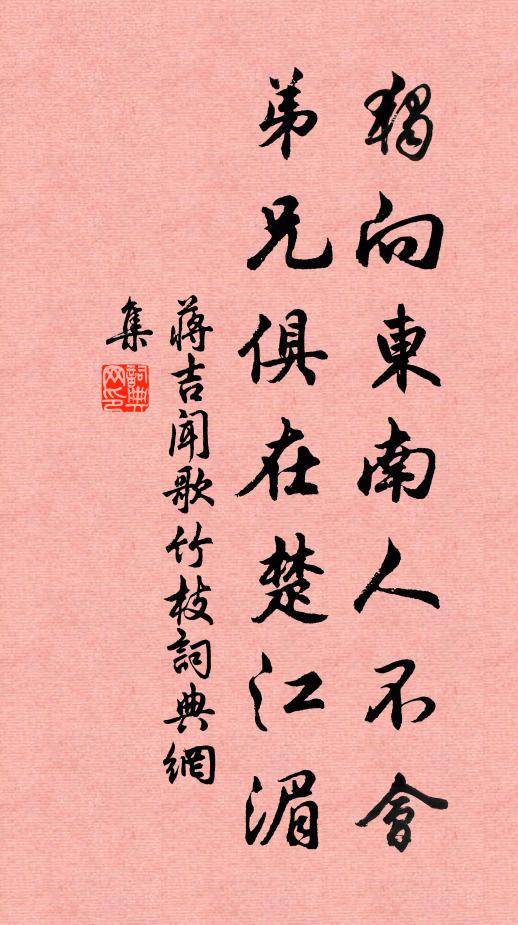 獨向東南人不會
弟兄俱在楚江湄
蔣吉聞歌竹枝詞典網
集
詞典網印